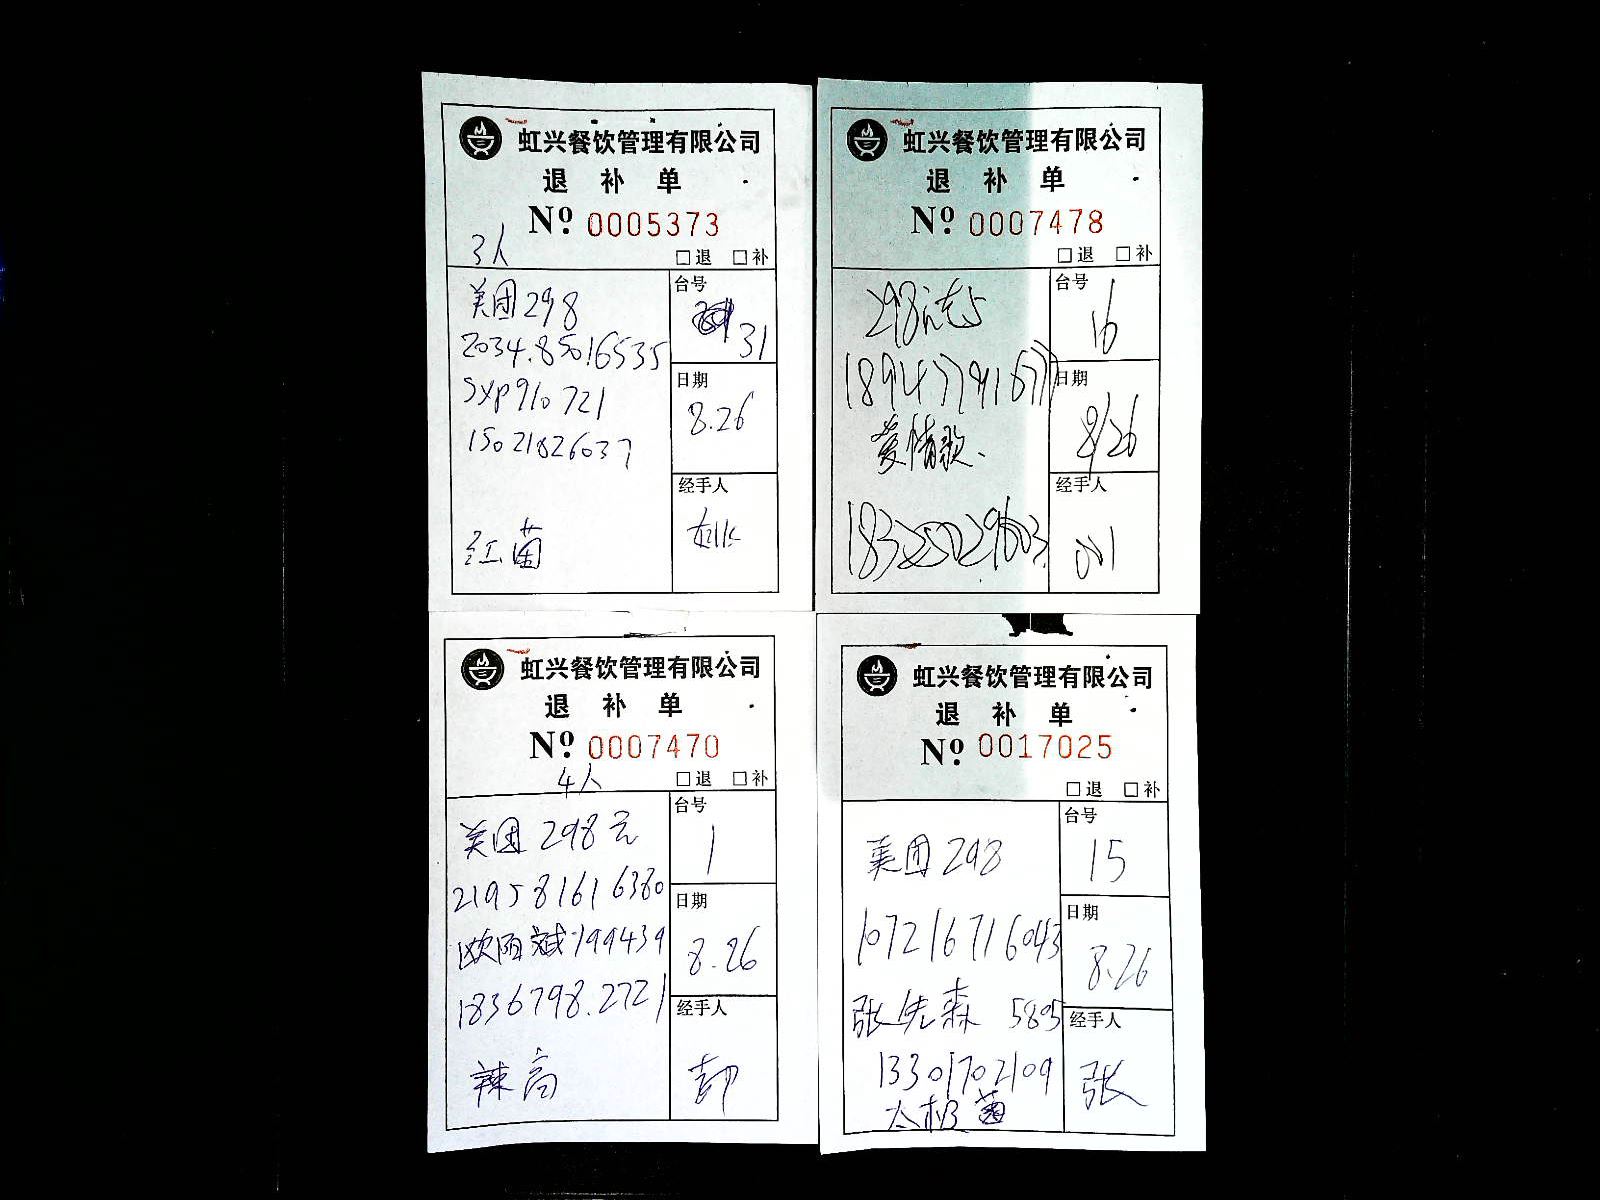 虹兴餐饮管理有限公司
退 补 单
№ 0005373
3人
□退 □补
美团298
2034.85016535
syp910721
15021826037
红菌
台号
31
日期
8.26
经手人
虹兴餐饮管理有限公司
退 补 单
№ 0007478
□退 □补
298元
爱情歌、
台号
16
日期
8/26
经手人
001
虹兴餐饮管理有限公司
退 补 单
№ 0007470
4人
□退 □补
美团298元
219581616380
欧阳斌199439
1836798.2721
辣高
台号
1
日期
8.26
经手人
彭
虹兴餐饮管理有限公司
退 补 单
№ 0017025
□退 □补
美团298
107216716043
张先森 5895
13301702109
太极菌
台号
15
日期
8.26
经手人
张